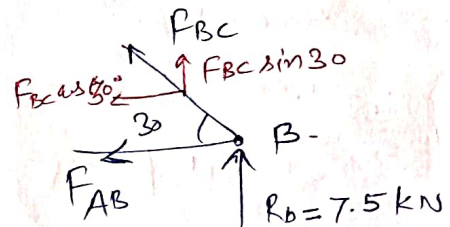 F_BC
F_BC sin30
F_BC cos30°
30
B -
F_AB
R_b = 7.5 kN